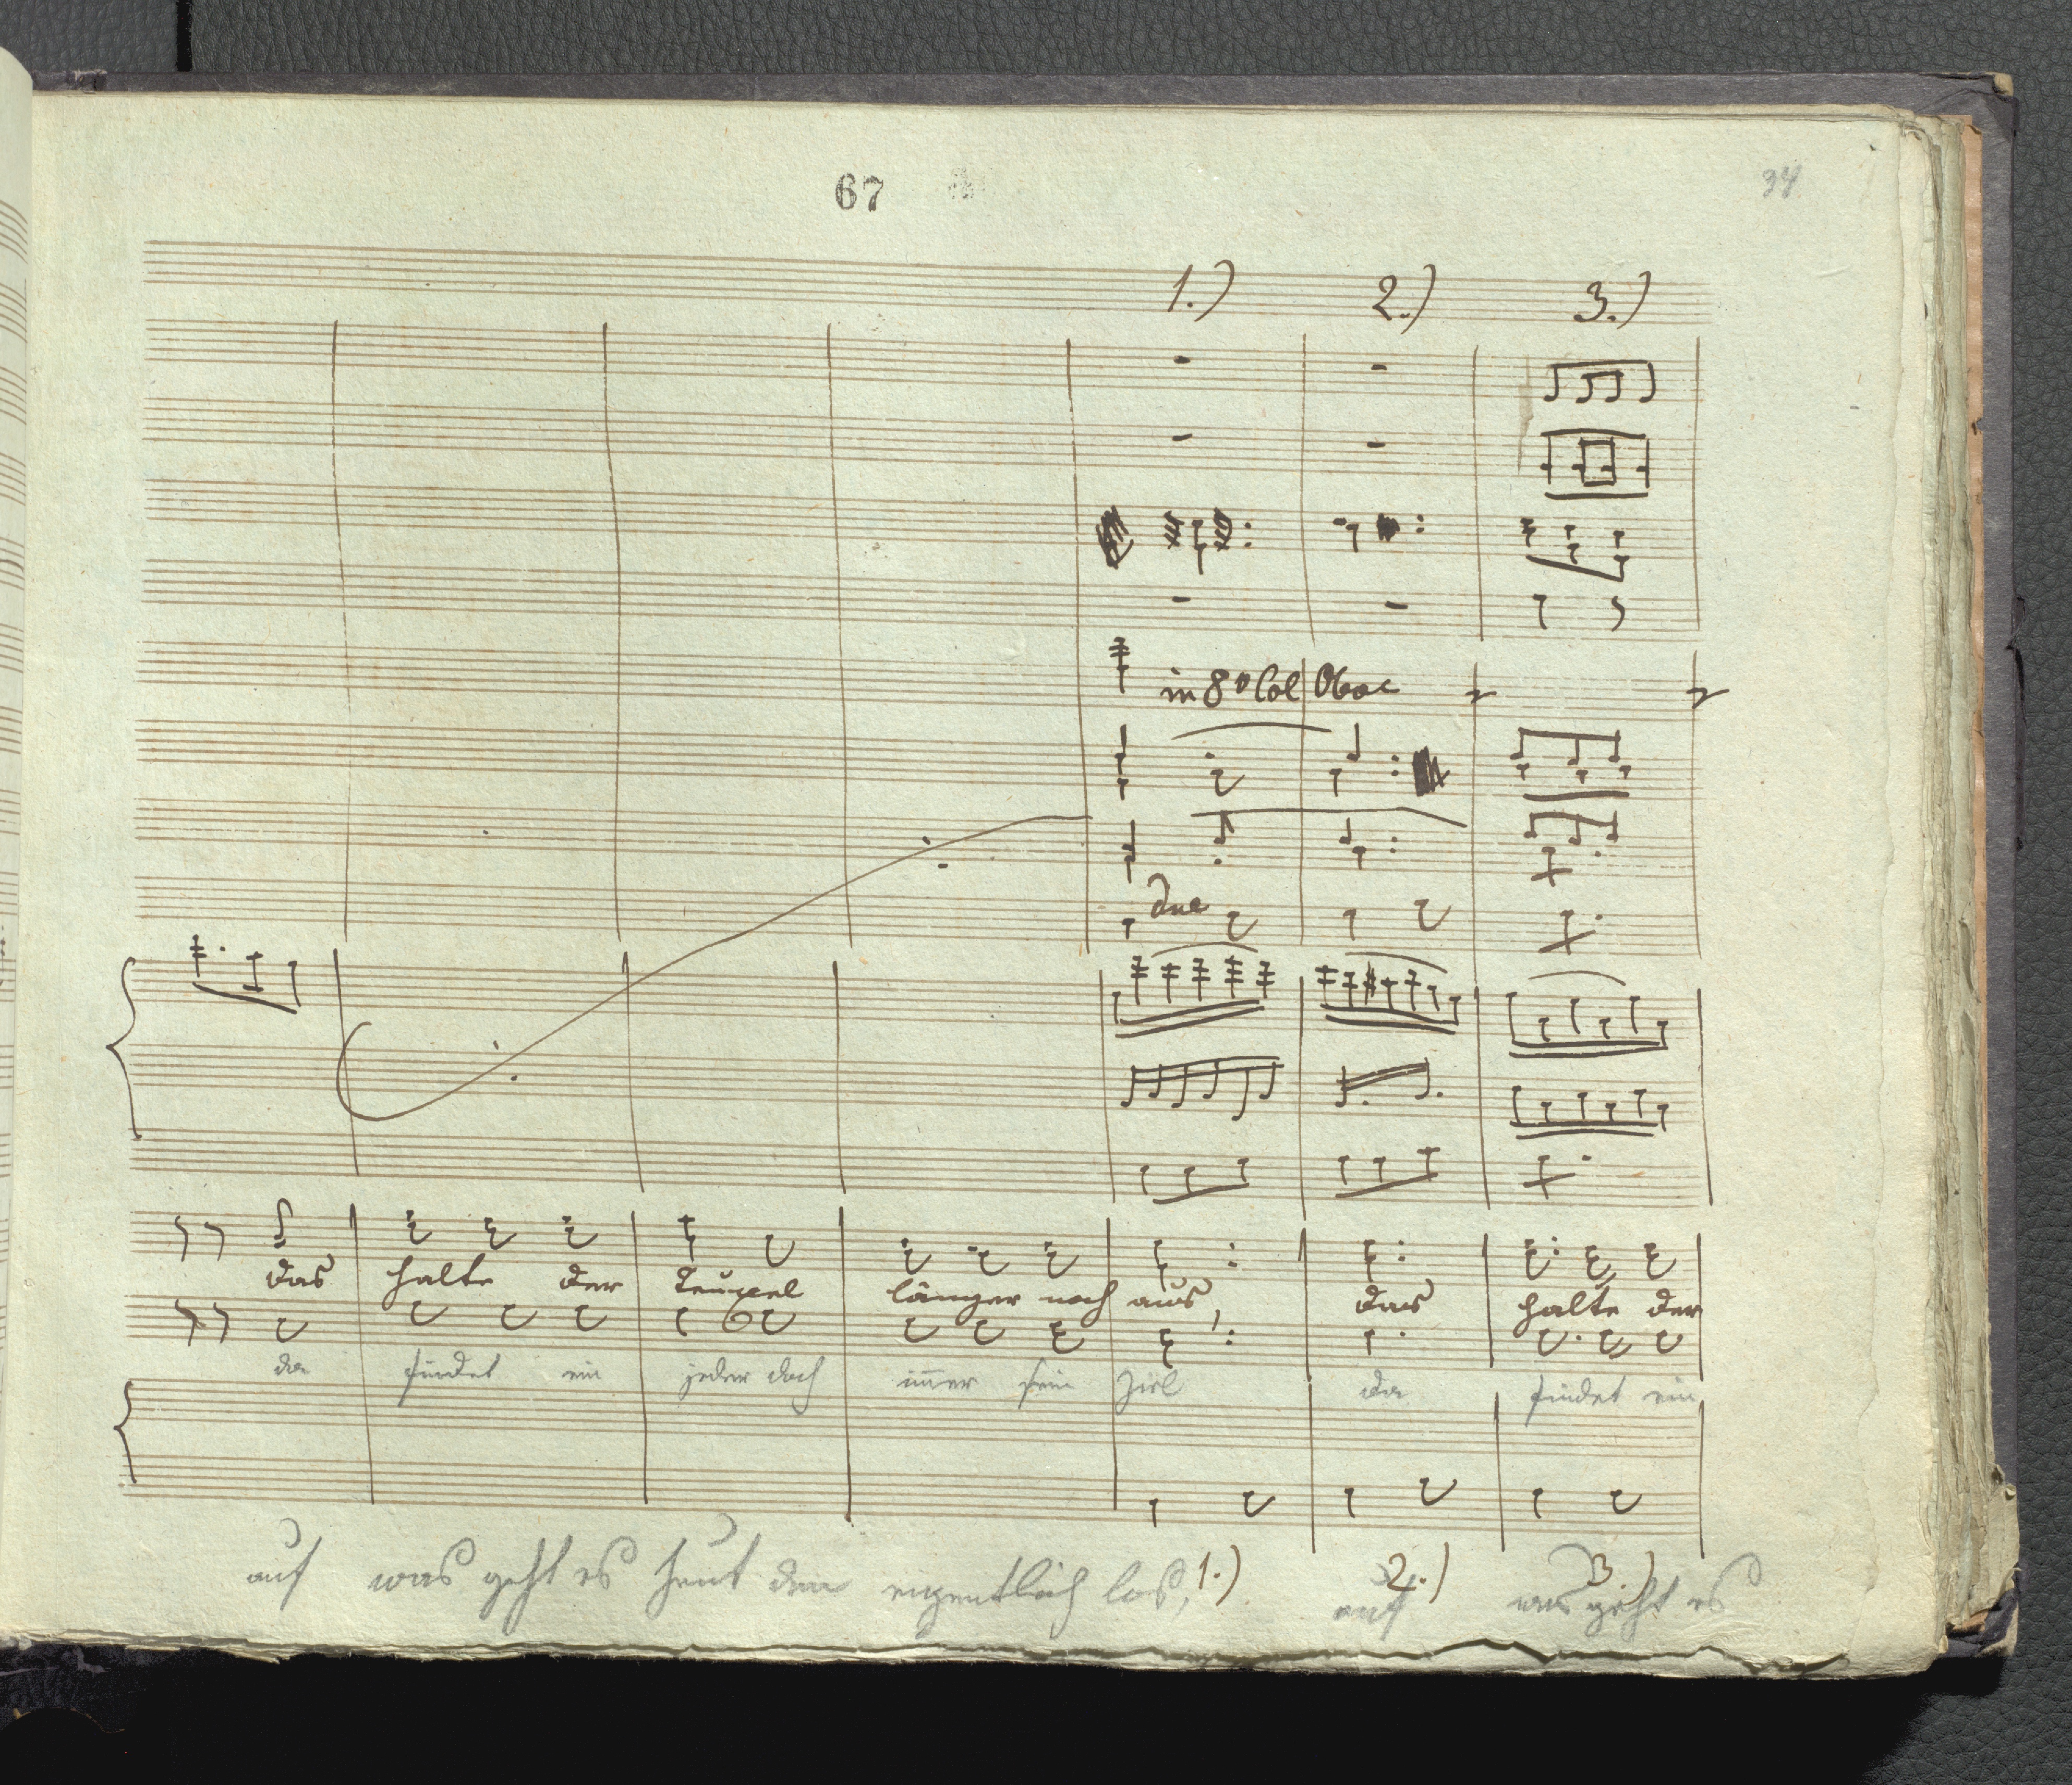 67
34
1.) 2.) 3.)
in 8va Col Oboe
due
das halte der Teuxel länger noch aus, das halte der
da findet ein jeder doch im̄er sein Ziel da findet ein
auf was geht es heut den eigentlich los, 1.) auf 2.) was geht es 3.)